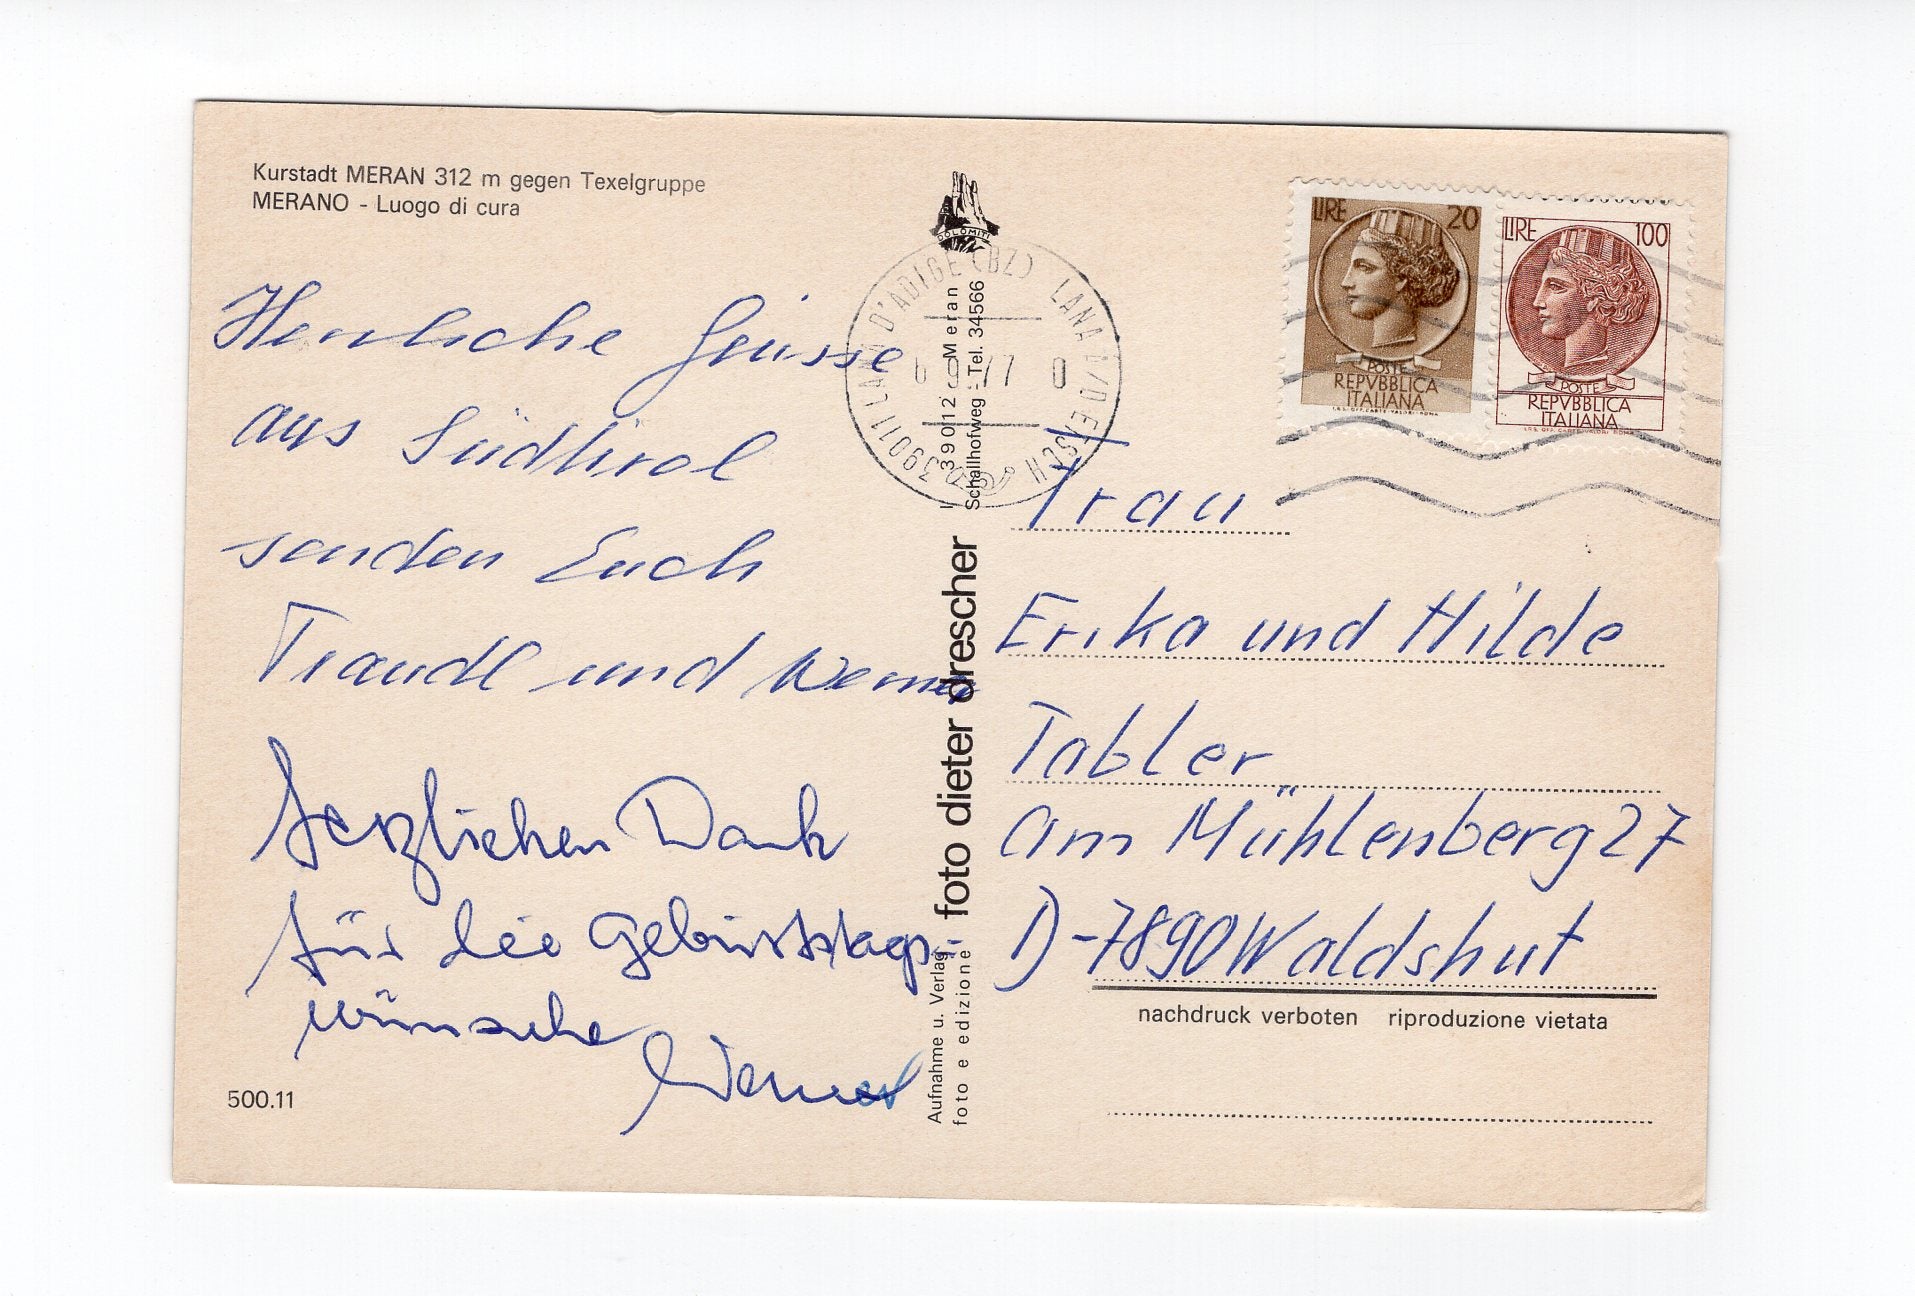 Kurstadt MERAN 312 m gegen Texelgruppe
MERANO - Luogo di cura
Herrliche Grüsse
aus Südtirol
senden Euch
Traudl und Werner
Herzlichen Dank
für die Geburtstags-
wünsche
Werner
500.11
DOLOMITI
39011 LANA D'ADIGE (BZ) LANA A/D ETSCH
6 9 77 0
I 39012 Meran
Schallhofweg - Tel. 34566
foto dieter drescher
Aufnahme u. Verlag
foto e edizione
LIRE 20
POSTE
REPVBBLICA
ITALIANA
I.P.S. OFF. CARTE VALORI ROMA
LIRE 100
POSTE
REPVBBLICA
ITALIANA
I.P.S. OFF. CARTE VALORI ROMA
Frau
Erika und Hilde
Tabler
Am Mühlenberg 27
D-7890 Waldshut
nachdruck verboten riproduzione vietata